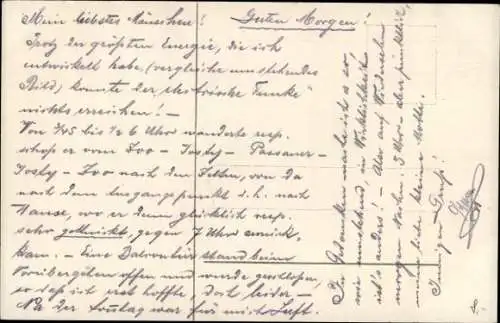 Mein liebstes Mäuschen!
Guten Morgen!
Trotz der größten Energie, die ich
entwickelt habe (vergleiche umstehendes
Bild) konnte der elektrische Funke"
nichts erreichen! –
Von 7/45 bis 1/2 6 Uhr wanderte resp.
schop er vom Zoo – Josty – Passauer –
Josty – Zoo nach den Zelten, von da
nach dem Ausgangspunkt d. h. nach
Hause, wo er denn glücklich resp.
sehr geknickt, gegen 7 Uhr
kam. – Eine
Vorübergehen offen und wurde geschlossen,
so daß ich erst hoffte, doch leider –
Na der Sonntag war für mich Luft.
In Gedanken mache ich's so,
wie umstehend, in Wirklichkeit
ist's anders! – Also auf Wiedersehen
morgen Nachm. 3 Uhr – aber pünktlich,
meine liebe kleine Motte.
Innigen Gruß!